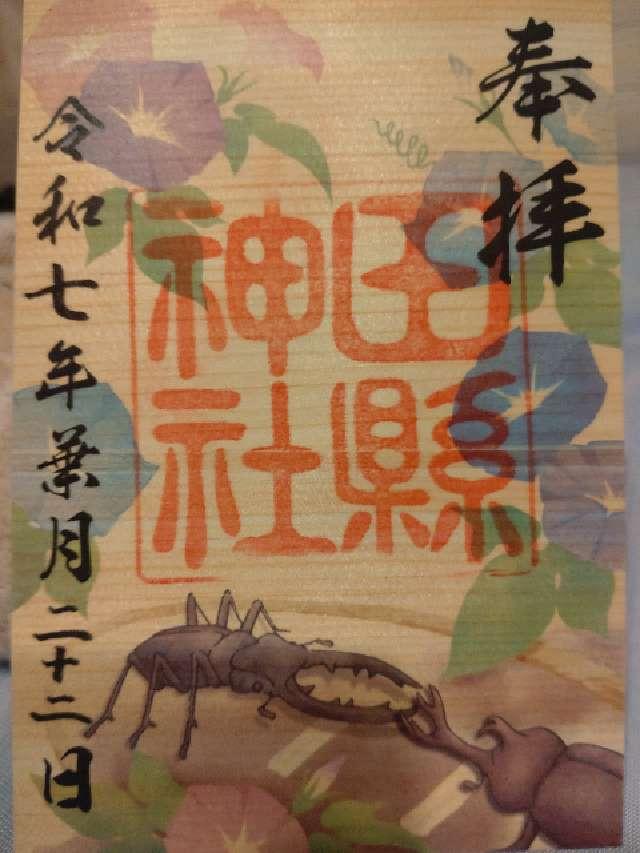 奉拝
田縣
神社
令和七年葉月二十二日